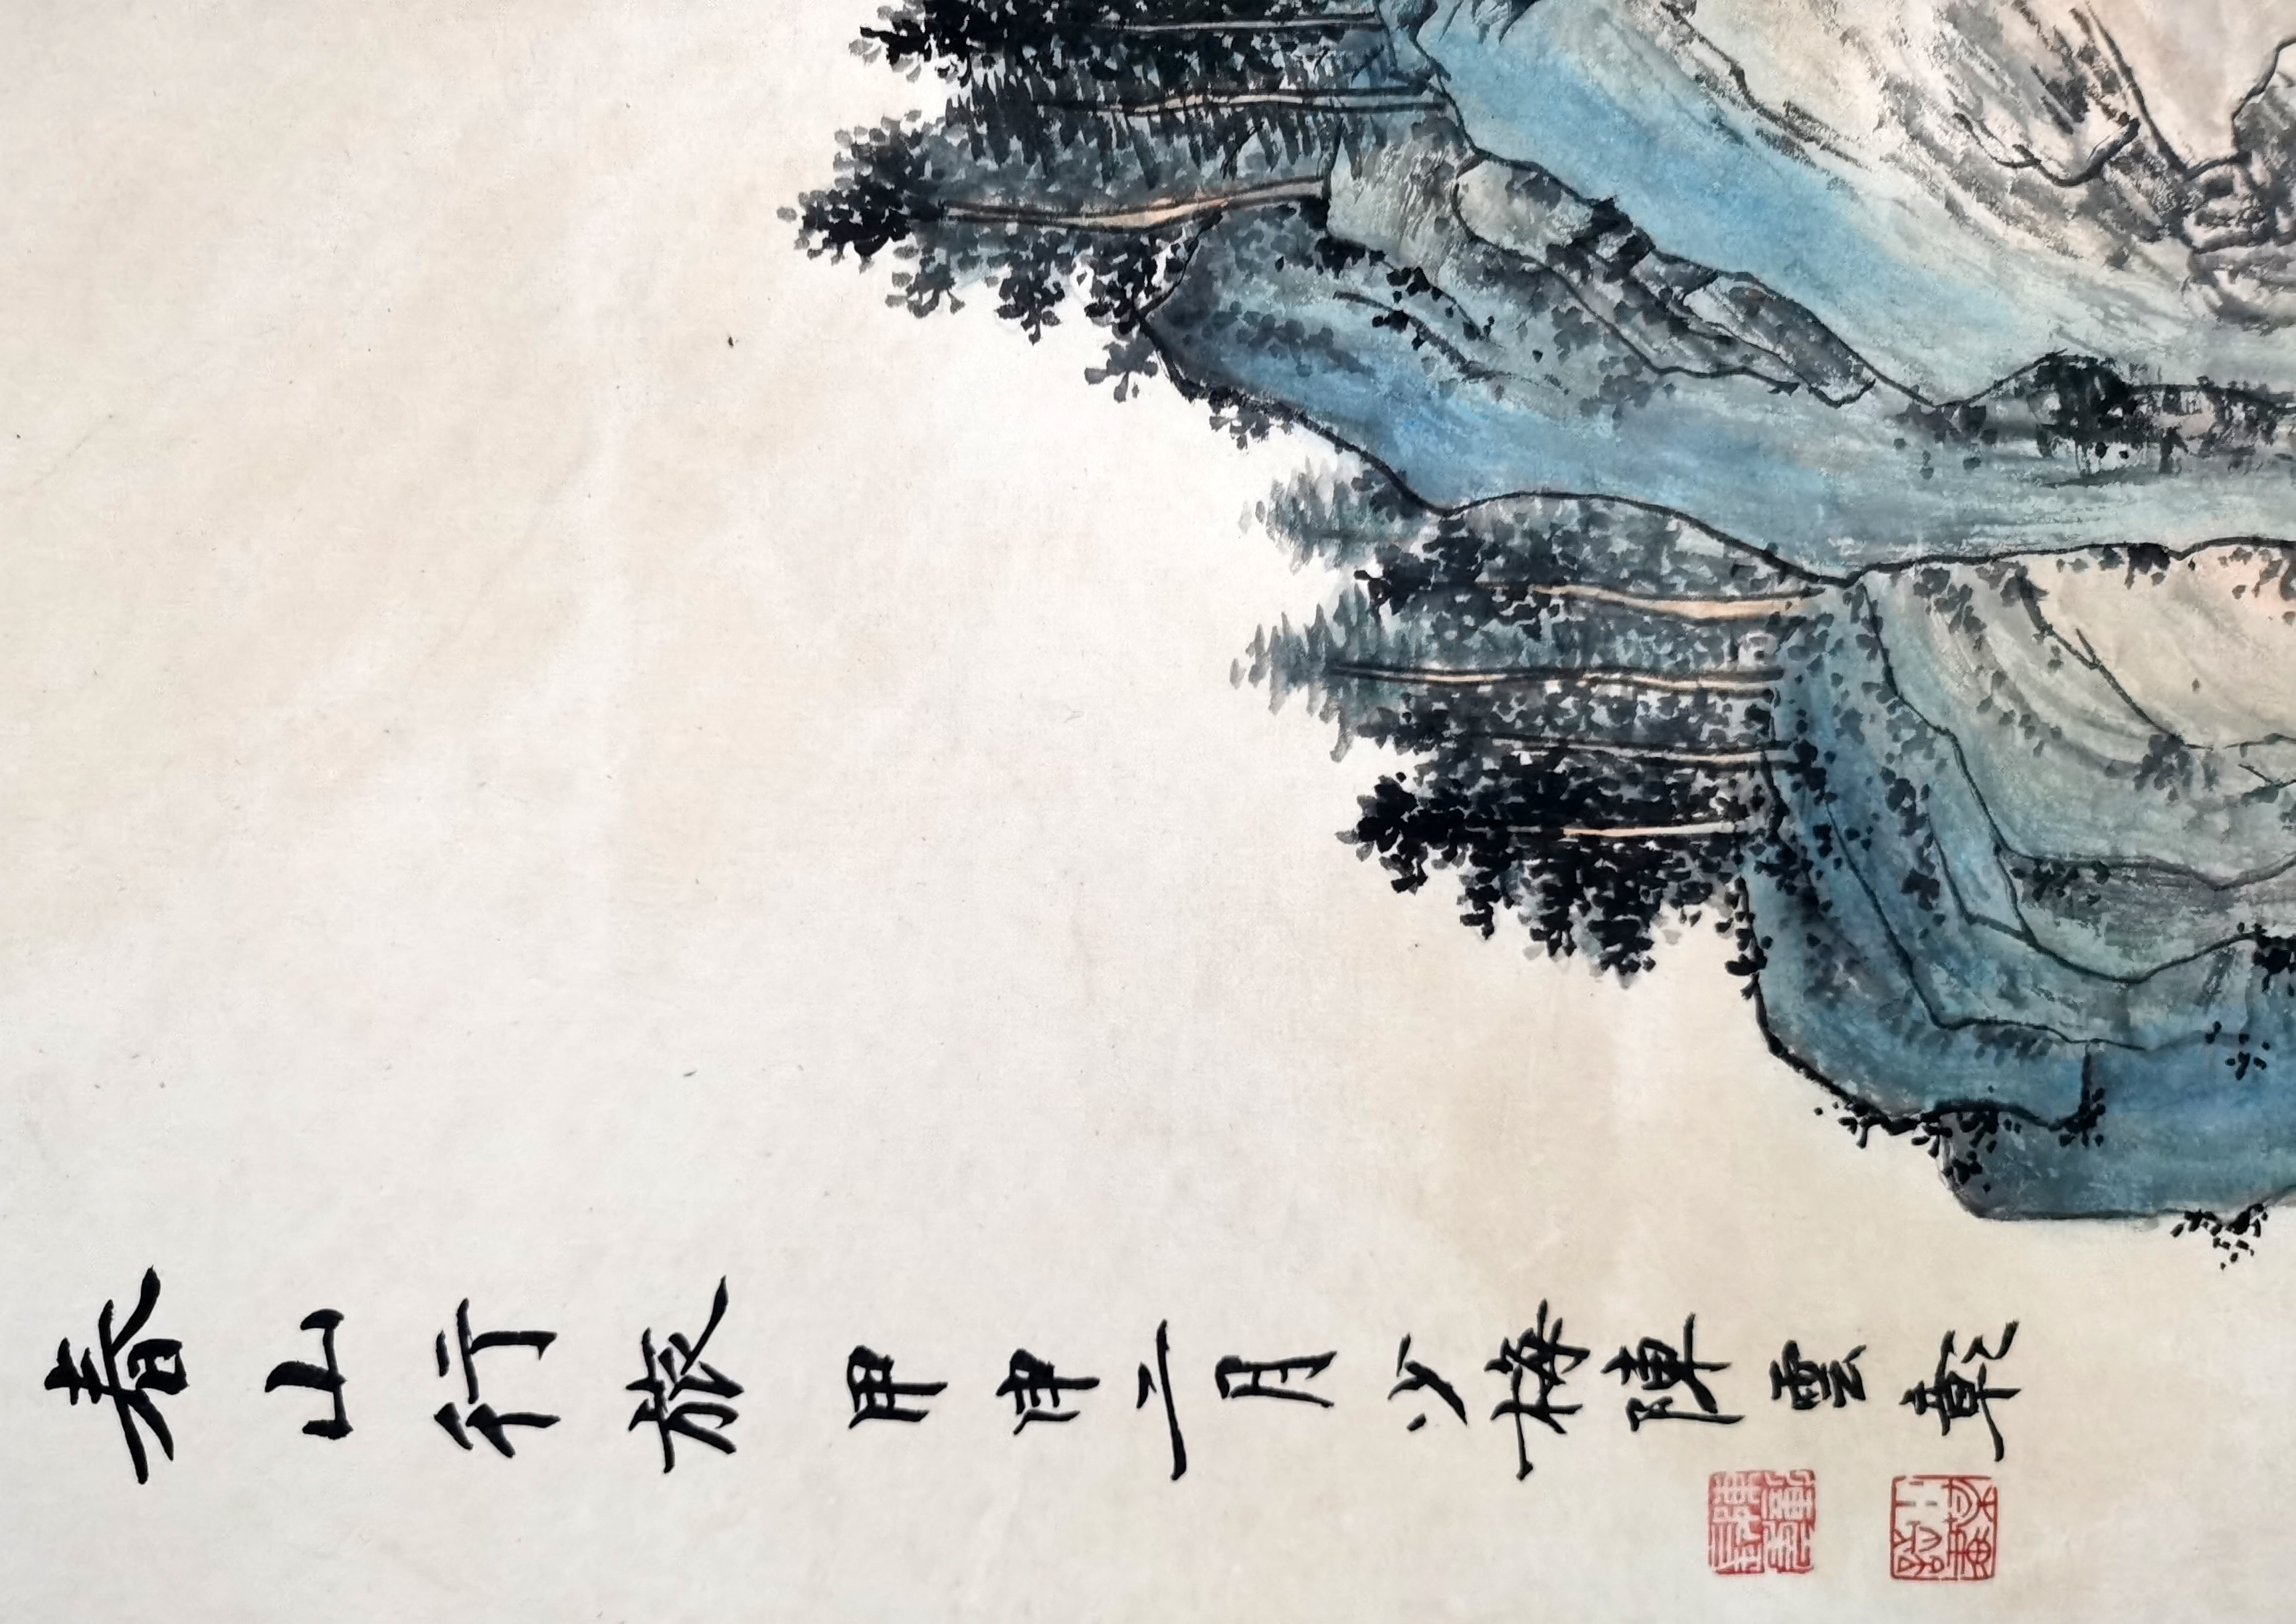 春山行旅甲申二月少梅陳雲彰